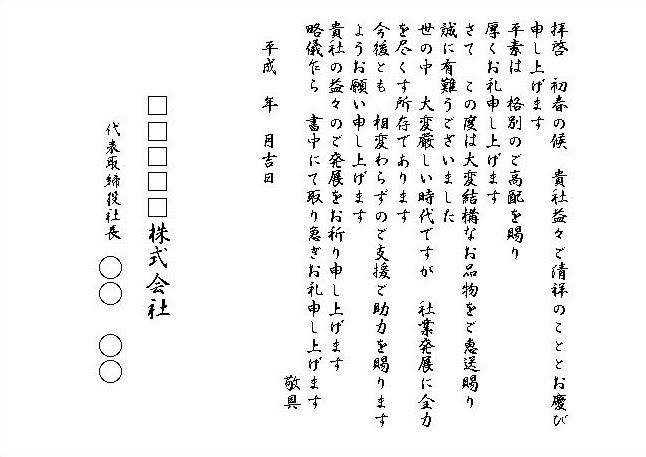 拝啓　初春の候　貴社益々ご清祥のこととお慶び
申し上げます
平素は　格別のご高配を賜り
厚くお礼申し上げます
さて　この度は大変結構なお品物をご恵送賜り
誠に有難うございました
世の中　大変厳しい時代ですが　社業発展に全力
を尽くす所存であります
今後とも　相変わらずのご支援ご助力を賜ります
ようお願い申し上げます
貴社の益々のご発展をお祈り申し上げます
略儀乍ら　書中にて取り急ぎお礼申し上げます
敬具
平成　年　月吉日
□□□□□株式会社
代表取締役社長　○○　○○